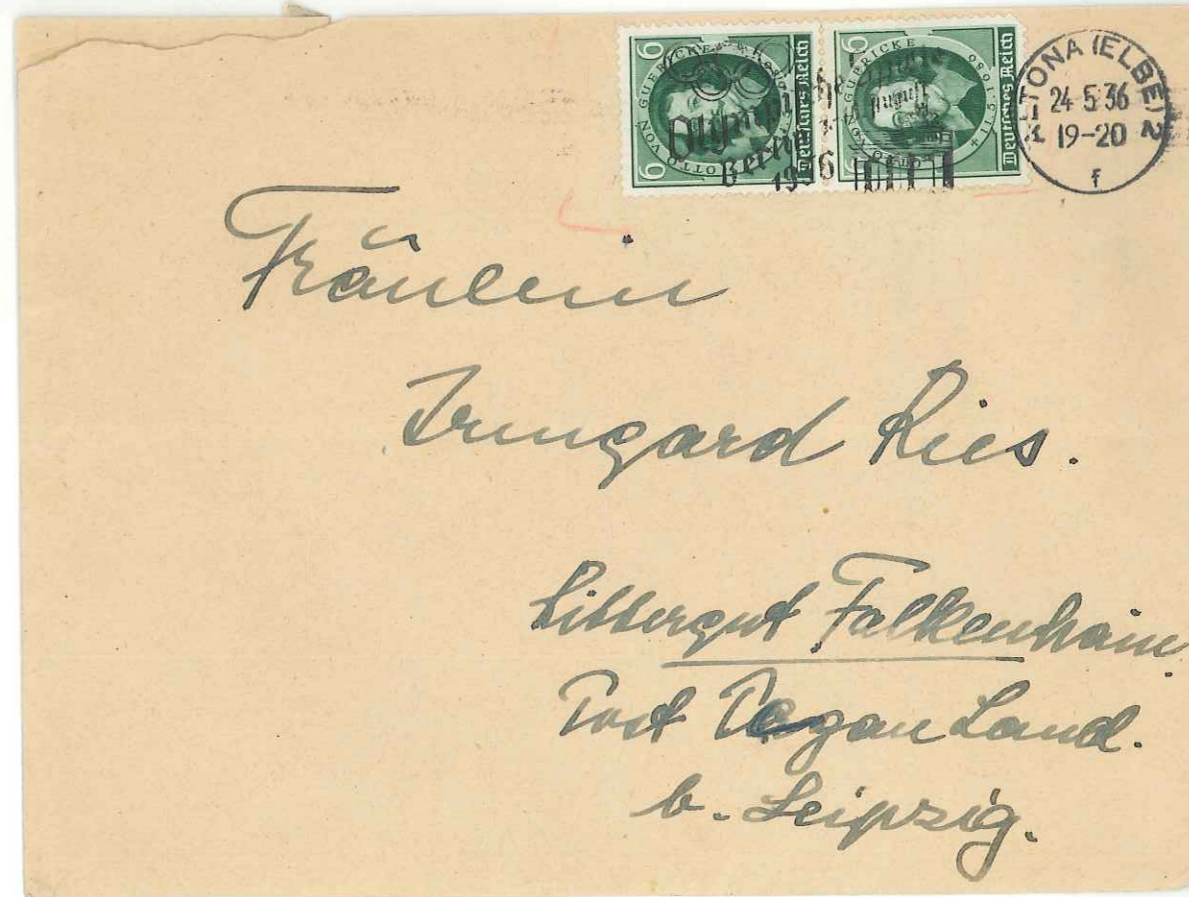 6 OTTO VON GUERICKE Deutsches Reich 6
6 OTTO VON GUERICKE † 11·5·1686 Deutsches Reich
Olympische Spiele
Berlin
1936
ALTONA (ELBE) 2
24.5.36
19-20
f
Fräulein
Irmgard Ries.
Rittergut Falkenhain.
Post Pegau Land.
b. Leipzig.